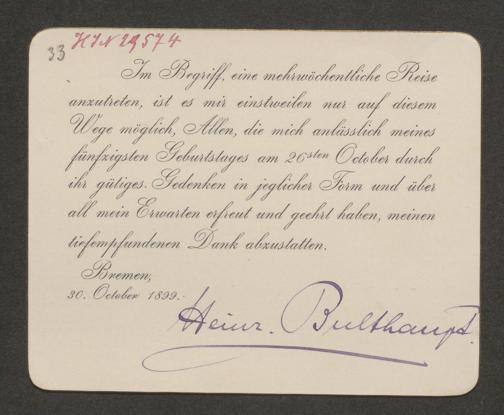 33 HIN 29574
Im Begriff, eine mehrwöchentliche Reise
anzutreten, ist es mir einstweilen nur auf diesem
Wege möglich, Allen, die mich anlässlich meines
fünfzigsten Geburtstages am 26sten October durch
ihr gütiges Gedenken in jeglicher Form und über
all mein Erwarten erfreut und geehrt haben, meinen
tiefempfundenen Dank abzustatten.
Bremen,
30. October 1899.
Heinr. Bulthaupt.